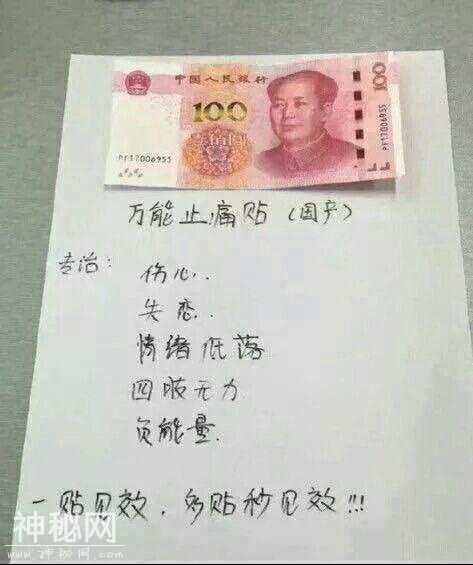 中国人民银行
100
100
PF17006955
PF17006955
万能止痛贴(国产)
专治:
伤心..
失恋..
情绪低落
四肢无力
负能量.
一贴见效,多贴秒见效!!!
神秘网
www.神秘网.com